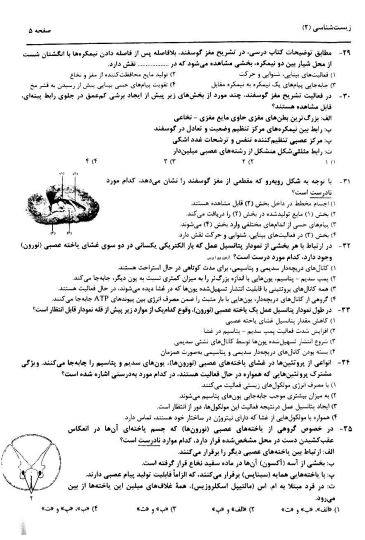 زیست‌شناسی (۲)
صفحه ۵
۲۹- مطابق توضیحات کتاب درسی، در تشریح مغز گوسفند، بلافاصله پس از فاصله دادن نیمکره‌ها با انگشتان شست
از محل شیار بین دو نیمکره، بخشی مشاهده می‌شود که در .............. نقش دارد.
۱) فعالیت‌های بینایی، شنوایی و حرکت
۲) تولید مایع محافظت‌کننده از مغز و نخاع
۳) جابه‌جایی پیام‌های یک نیمکره به نیمکره مقابل
۴) تقویت پیام‌های حسی بینایی پیش از رسیدن به قشر مخ
۳۰- در فعالیت تشریح مغز گوسفند، چند مورد از بخش‌های زیر پیش از ایجاد برشی کم‌عمق در جلوی رابط پینه‌ای،
قابل مشاهده هستند؟
الف: بزرگ‌ترین بطن‌های مغزی حاوی مایع مغزی - نخاعی
ب: رابط بین نیمکره‌های مرکز تنظیم وضعیت و تعادل در گوسفند
پ: مرکز عصبی تنظیم‌کننده تنفس و ترشحات غدد اشکی
ت: رابط مثلثی‌شکل متشکل از رشته‌های عصبی میلین‌دار
۱) ۱
۲) ۲
۳) ۳
۴) ۴
۳۱- با توجه به شکل روبه‌رو که مقطعی از مغز گوسفند را نشان می‌دهد، کدام مورد
نادرست است؟
۱) اجسام مخطط در داخل بخش (۲) قابل مشاهده هستند.
۲) بخش (۱) مایع تولیدشده در بخش (۲) را دریافت می‌کند.
۳) پیام‌های حسی از اندام‌های مختلفی وارد بخش (۴) می‌شوند.
۴) بخش (۳) در فعالیت‌های بینایی، شنوایی و حرکت نقش دارد.
۳۲- در ارتباط با هر بخشی از نمودار پتانسیل عمل که بار الکتریکی یکسانی در دو سوی غشای یاخته عصبی (نورون)
وجود دارد، کدام مورد درست است؟
۱) کانال‌های دریچه‌دار سدیمی و پتاسیمی، برای مدت کوتاهی در حال استراحت هستند.
۲) پمپ سدیم - پتاسیم، یون‌هایی با اندازه بزرگ‌تر را به میزان کمتری نسبت به یون دیگر، جابه‌جا می‌کند.
۳) همه کانال‌های پروتئینی با قابلیت انتشار تسهیل‌شده یون‌ها که در غشا دیده می‌شوند، در حال فعالیت هستند.
۴) گروهی از کانال‌های دریچه‌دار، یون‌هایی با بار مثبت را ضمن مصرف انرژی بین پیوندهای ATP جابه‌جا می‌کنند.
۳۳- در طول نمودار پتانسیل عمل یک یاخته عصبی (نورون)، وقوع کدام‌یک از موارد زیر پیش از قله نمودار قابل انتظار است؟
۱) کاهش مقدار پتاسیل غشای یاخته عصبی
۲) افزایش شدت فعالیت پمپ سدیم - پتاسیم در غشا
۳) شروع انتشار تسهیل‌شده یون‌ها توسط کانال‌های نشتی سدیمی
۴) بسته بودن کانال‌های دریچه‌دار سدیمی و پتاسیمی به‌صورت همزمان
۳۴- انواعی از پروتئین‌ها در غشای یاخته‌های عصبی (نورون‌ها)، یون‌های سدیم و پتاسیم را جابه‌جا می‌کنند. ویژگی
مشترک پروتئین‌هایی که همواره در حال فعالیت هستند، در کدام مورد به‌درستی اشاره شده است؟
۱) با مصرف انرژی مولکول‌های زیستی فعالیت می‌کنند.
۲) به میزان بیشتری موجب جابه‌جایی یون‌های پتاسیم می‌شوند.
۳) ایجاد پتانسیل عمل درنتیجه فعالیت این مولکول‌ها، دور از انتظار است.
۴) همواره با مولکول‌هایی از غشا که دارای نیتروژن در ساختار خود هستند، تماس دارد.
۳۵- در خصوص گروهی از یاخته‌های عصبی (نورون‌ها) که جسم یاخته‌ای آن‌ها در انعکاس
عقب‌کشیدن دست در محل مشخص‌شده قرار دارد، کدام موارد نادرست است؟
الف: ارتباط بین یاخته‌های عصبی دیگر را برقرار می‌کنند.
ب: بخشی از آسه (آکسون) آن‌ها در ماده سفید نخاع قرار گرفته است.
پ: با یاخته‌هایی همایه (سیناپس) برقرار می‌کنند، که الزاماً قابلیت تولید پیام عصبی دارند.
ت: در فرد مبتلا به ام. اس (مالتیپل اسکلروزیس)، همهٔ غلاف‌های میلین این یاخته‌ها از بین
می‌رود.
۱) «الف»، «پ» و «ت»
۲) «الف» و «پ»
۳) «ب» و «ت»
۴) «ب»، «پ» و «ت»